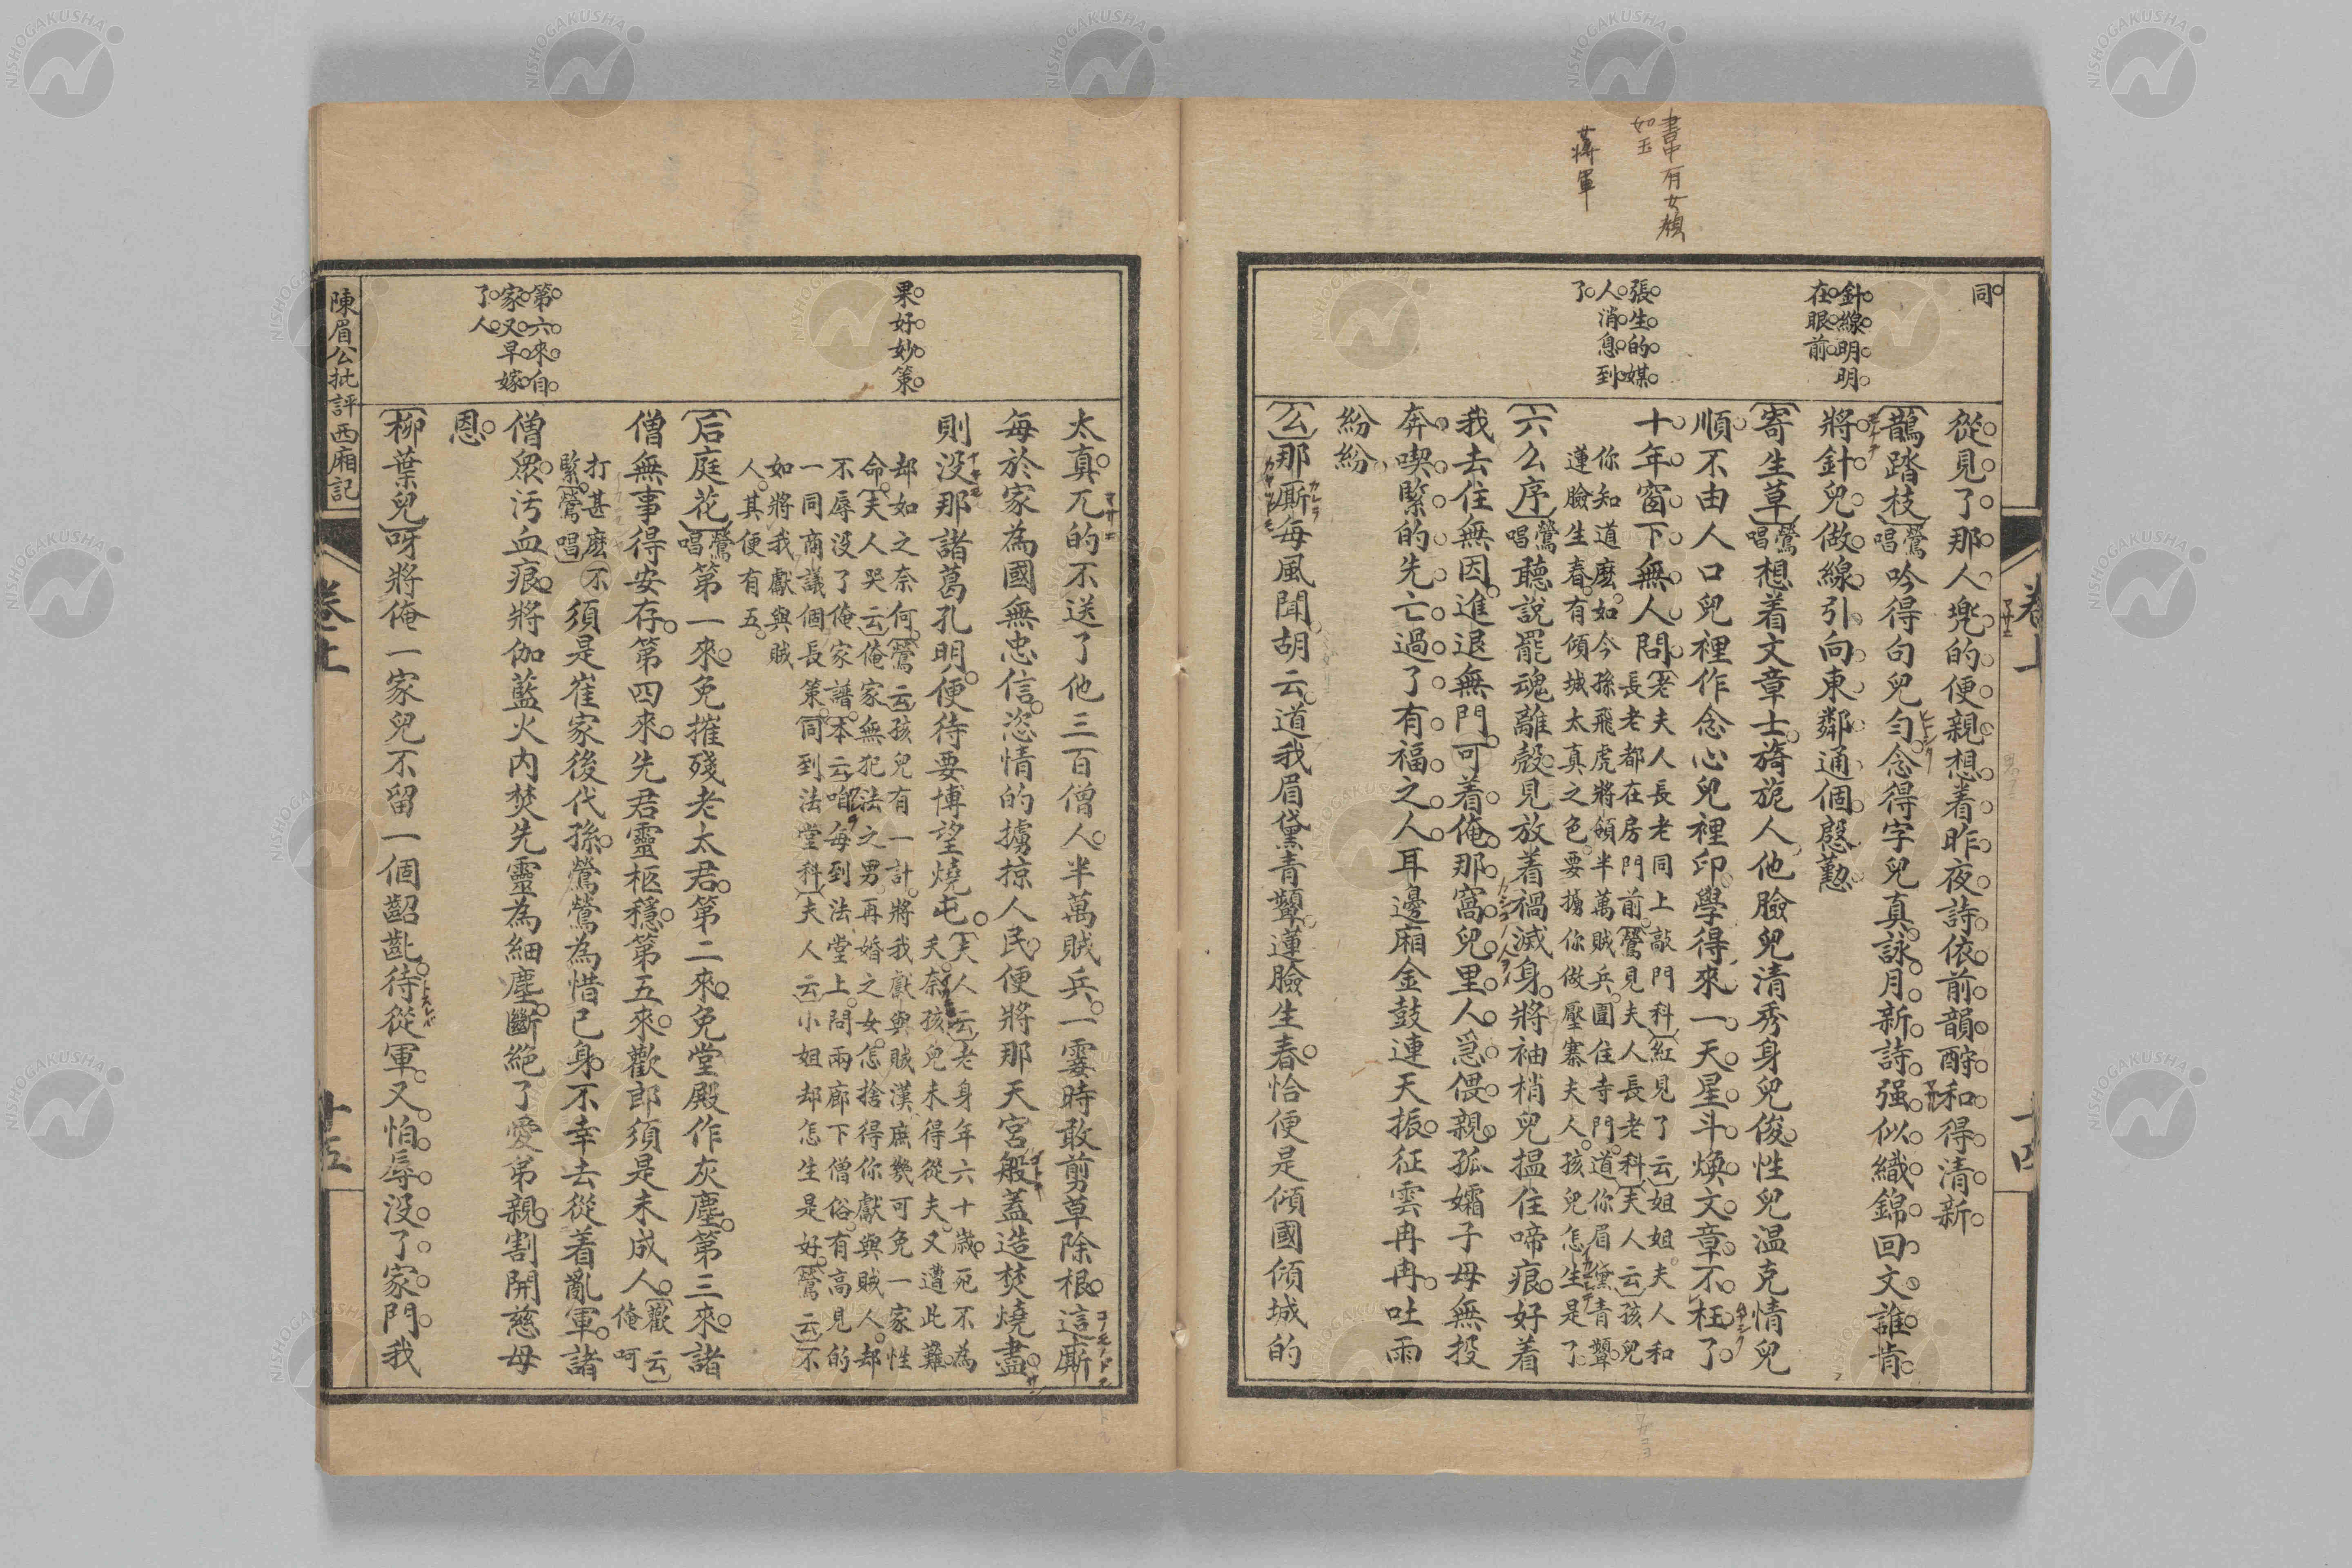 書中有女顏
如玉
蔣軍
同
針線明明
在眼前
張生的媒
人消息到
了
從見了那人兜的便親想着昨夜詩依前韻酧和得清新
〔鵲踏枝〕鶯唱吟得句兒勻念得字兒真詠月新詩强似織錦回文誰肯
將針兒做線引向東鄰通個慇懃
〔寄生草〕鶯唱想着文章士旖旎人他臉兒清秀身兒俊性兒温克情兒
順不由人口兒裡作念心兒裡印學得來一天星斗煥文章不枉了
十年窗下無人問〔老夫人長老同上敲門科〕紅見了云〕姐姐夫人和
長老都在房門前〔鶯見夫人長老科〕〔夫人云〕孩兒
你知道麽如今孫飛虎將領半萬賊兵圍住寺門道你眉黛青顰
蓮臉生春有傾城太真之色要擄你做壓寨夫人孩兒怎生是了
〔六幺序〕鶯唱聽說罷魂離殼見放着禍滅身將袖梢兒揾住啼痕好着
我去住無因進退無門可着俺那窩兒里人急偎親孤孀子母無投
奔喫緊的先亡過了有福之人耳邊廂金鼓連天振征雲冉冉吐雨
紛紛
〔幺〕那厮每風聞胡云道我眉黛青顰蓮臉生春恰便是傾國傾城的
卷上
十四
果好妙策
第六來自
家又早嫁
了人
太真兀的不送了他三百僧人半萬賊兵一霎時敢剪草除根這厮
每於家為國無忠信恣情的擄掠人民便將那天宮般蓋造焚燒盡
則没那諸葛孔明便待要博望燒屯〔夫人云〕老身年六十歲死不為
夭奈孩兒未得從夫又遭此難
却如之奈何〔鶯云〕孩兒有一計將我獻與賊漢庶幾可免一家性
命〔夫人哭云〕俺家無犯法之男再婚之女怎捨得你獻與賊人却
不辱没了俺家譜〔本云〕咱每到法堂上問兩廊下僧俗有高見的
一同商議個長策〔同到法堂科〕夫人云〕小姐却怎生是好〔鶯云〕不
如將我獻與賊
人其便有五
〔后庭花〕鶯唱第一來免摧殘老太君第二來免堂殿作灰塵第三來諸
僧無事得安存第四來先君靈柩穩第五來歡郎須是未成人〔歡云〕
俺呵
打甚麽不
緊〔鶯唱〕須是崔家後代孫鶯鶯為惜己身不幸去從着亂軍諸
僧衆污血痕將伽藍火内焚先靈為細塵斷絶了愛弟親割開慈母
恩
〔柳葉兒〕呀將俺一家兒不留一個齠齔待從軍又怕辱没了家門我
陳眉公批評西廂記
卷上
十五